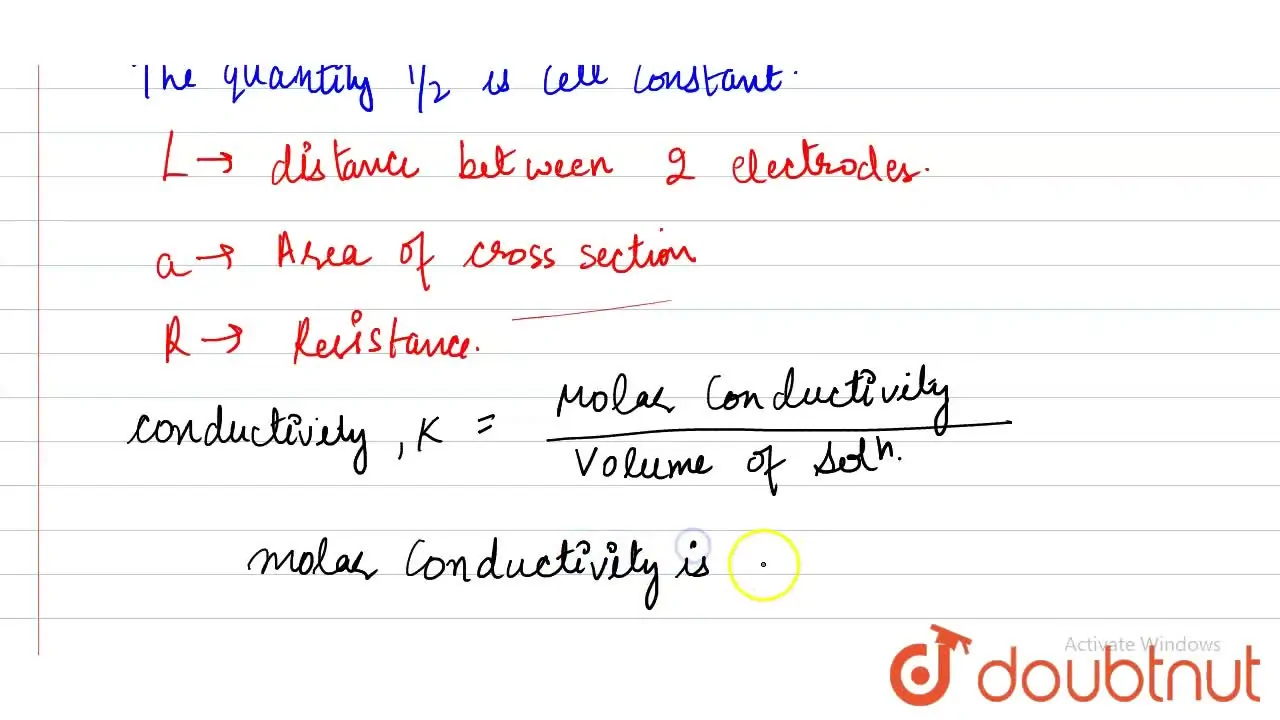 The quantity 1/2 is cell constant.
L → distance between 2 electrodes.
a → Area of cross section
R → Resistance.
conductivity, K = Molar Conductivity
Volume of solⁿ.
molar Conductivity is
Activate Windows
doubtnut